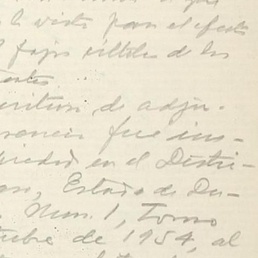 la vista para el efecto
fojas útiles de los
critura de adju-
rancia fue ins-
piedad en el Distri-
Estado de Du-
Num. 1, Tomo
tubre de 1954, al